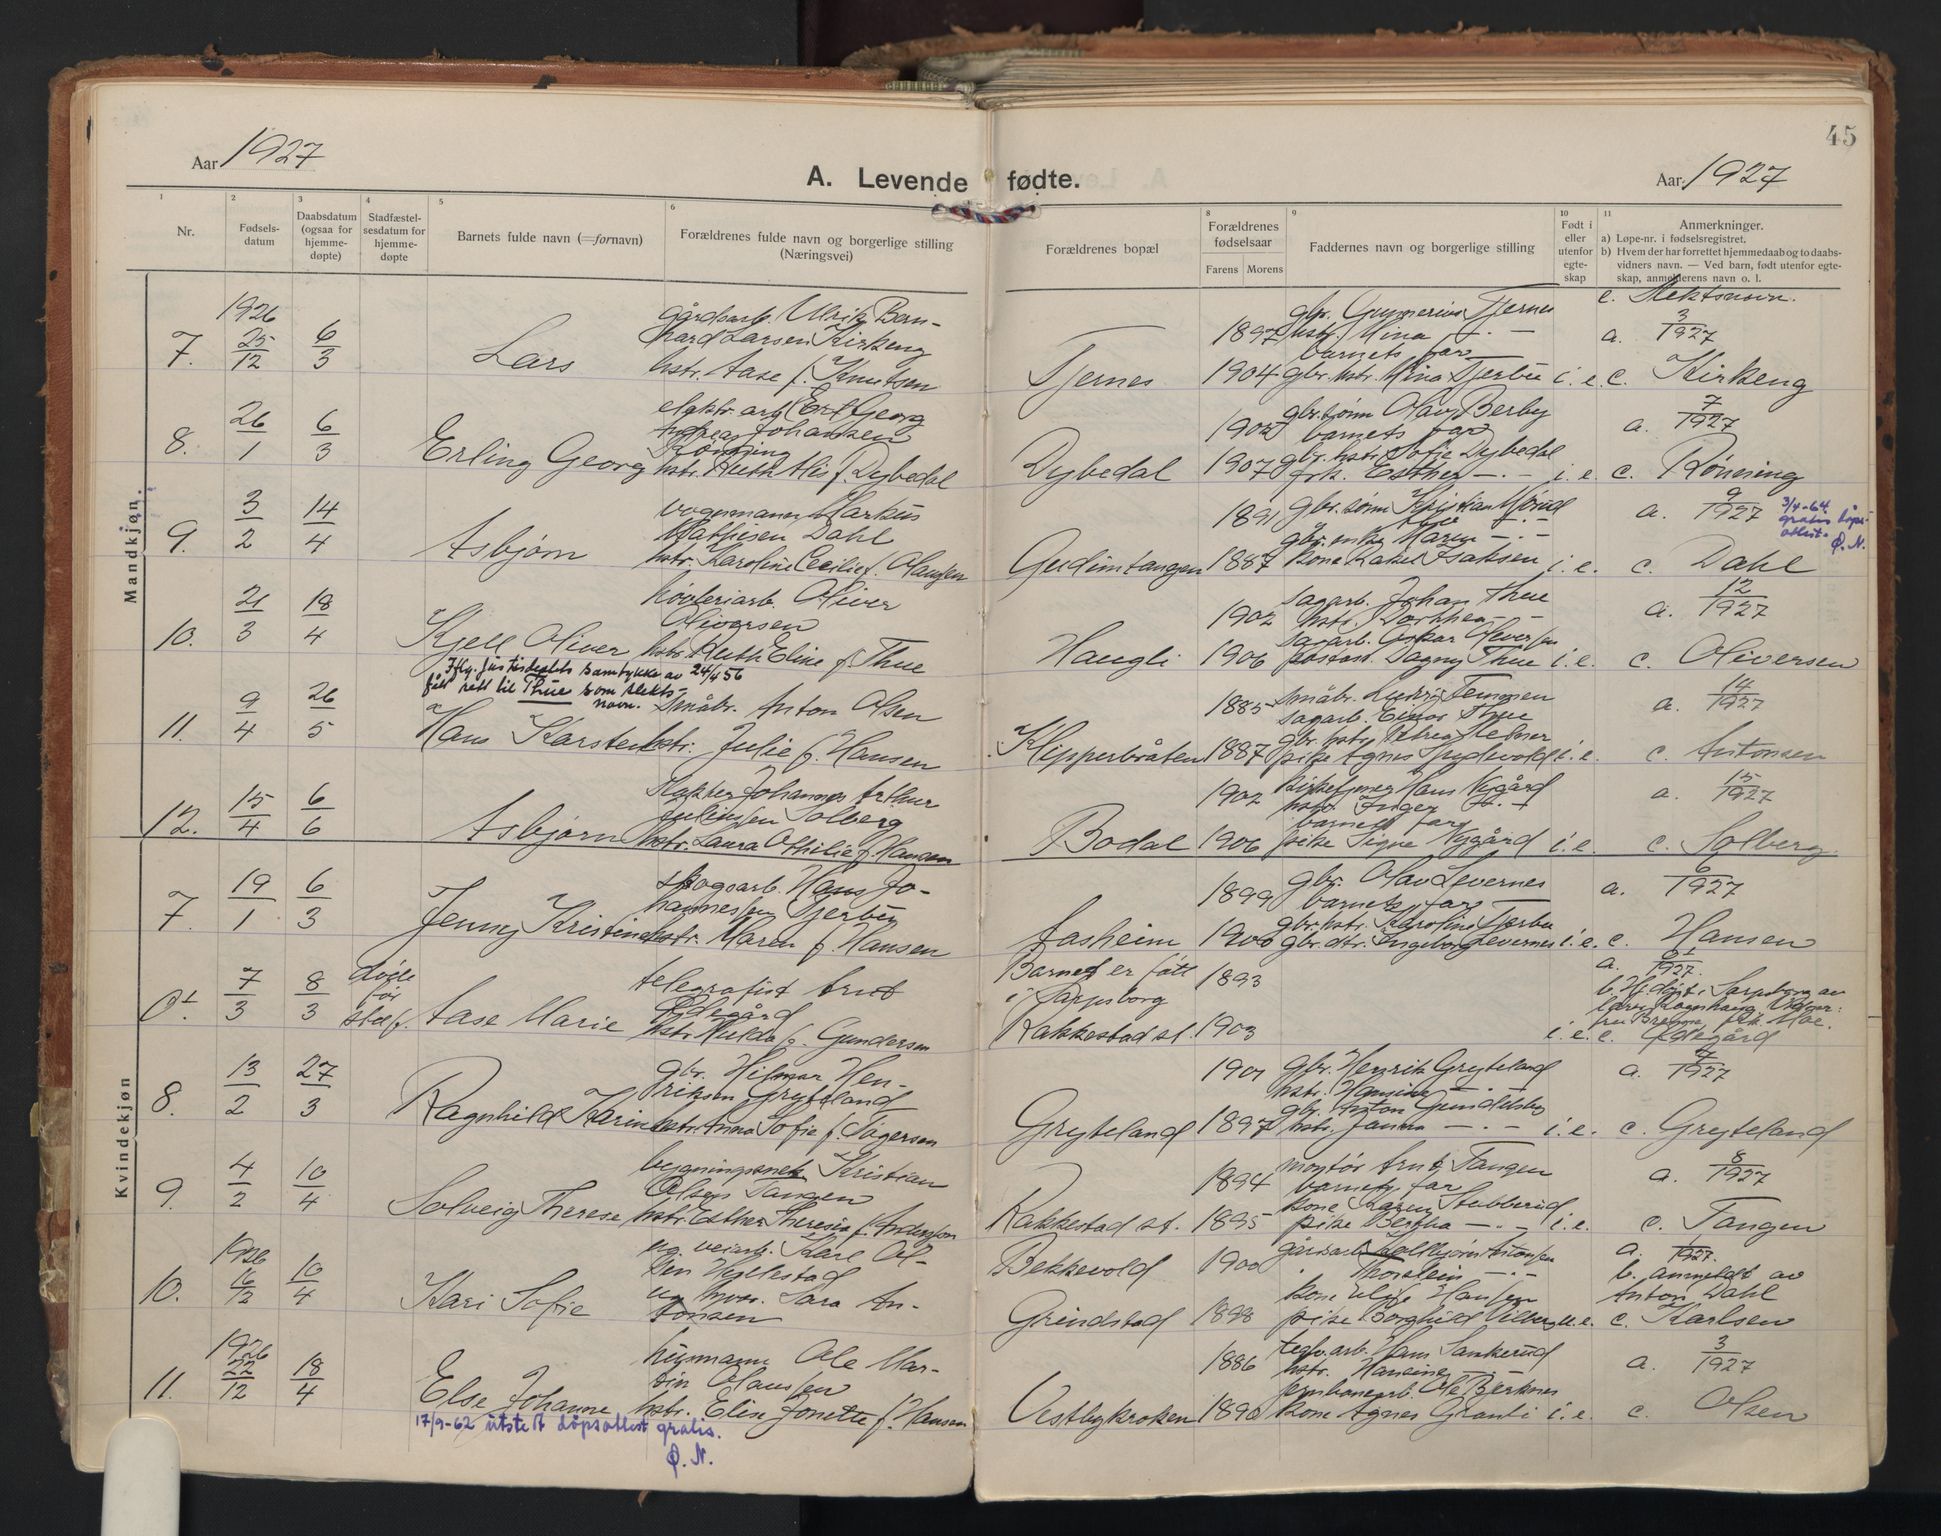 Aar 1927
A. Levende fødte.
Aar 1927
45
1 2 3 4 5 6 8 9 10 11
Nr.
Fødsels-
datum
Daabsdatum
(ogsaa for
hjemme-
døpte)
Stadfæstel-
sesdatum for
hjemme-
døpte
Barnets fulde navn (=fornavn)
Forældrenes fulde navn og borgerlige stilling
(Næringsvei)
Forældrenes bopæl
Forældrenes
fødselsaar
Farens Morens
Faddernes navn og borgerlige stilling
Født i
eller
utenfor
egte-
skap
Anmerkninger.
a) Løpe-nr. i fødselsregistret.
b) Hvem der har forrettet hjemmedaab og to daabs-
vidners navn. — Ved barn, født utenfor egte-
skap, anmelderens navn o. l.
c. Slektsnavn.
Mandkjøn.
7. 1926 25/12 6/3 Lars
gårdsarb. Ulrik Bern-
hard Larsen Kirkeng
hstr. Aase f. Knutsen
Tjernes 1897 1904
gbr. Gunnerius Tjernes
hstr. Mina — . —
barnets far
gbr. hstr. Mina Tjerbu i. e.
a. 3/1927
c. Kirkeng
8. 26/1 6/3 Erling Georg
elektr. arb. Georg
Andreas Johansen
Rönning
hstr. Ruth f. Dybedal
Dybedal 1902 1907
gbr. sönn Olav Berby
barnets far
gbr. hstr. Sofie Dybedal
frk. Esther — . — i. e.
a. 7/1927
c. Rönning
9. 3/2 14/4 Asbjørn
vognmann Markus
Mathiesen Dahl
hstr. Karoline Cecilie f. Olausen
Gudimtangen 1891 1887
gbr. sönn Kristian Mörud
gbr. enke Maren — . —
kone Rakel Isaksen i. e.
a. 9/1927
3/4-64
gratis dåps-
attest.
Ø. N.
c. Dahl
10. 21/3 18/4 Kjell Oliver
høvleriarb. Oliver
Oliversen
hstr. Ruth Eline f. Thue
Haugli 1902 1906
sagarb. Johan Thue
hstr. Dorthea —
sagarb. Oskar Oliversen
Dagny Thue i. e.
a. 12/1927
c. Oliversen
Iflg. justisdeptets samtykke av 24/4 56
fått rett til Thue som slekts-
navn.
11. 9/4 26/5 Hans Karsten
Småbr. Anton Olsen
hstr. Julie f. Hansen
Klipperbråten 1885 1887
småbr. Ludvig
sagarb. Einar Thue
gbr. hstr. Petrea
pike Agnes Spydevold i. e.
a. 14/1927
c. Antonsen
12. 15/4 6/6 Asbjørn
Johannes Arthur
Julius/en Solberg
hstr. Laura Othilie f. Hansen
Bodal 1902 1906
kirketjener Hans Nygård
hstr. Inger — . —
barnets far
pike Signe Nygård i. e.
a. 15/1927
c. Solberg.
Kvindekjøn
7. 19/1 6/3 Jenny Kristine
skogsarb. Hans Jo-
hannes/en Tjerbu
hstr. Maren f. Hansen
Aasheim 1899 1900
gbr. Olav Levernes
barnets far
gbr. hstr. Karoline Tjerbu
gbr. dtr. Ingeborg Levernes i. e.
a. 6/1927
c. Hansen
0¹. 7/3 8/3 døde
før
stadf. Aase Marie
telegrafist Arnt
Ödegård
hstr. Hulda f. Gundersen
Barnet er født
i Sarpsborg
Rakkestad st. 1893 1903
i. e.
a. 0¹/1927.
b. Hj.døpt i Sarpsborg av
c. Ödegård
8. 13/2 27/3 Ragnhild Karin
gbr. Hilmar Hen-
riksen Gryteland
hstr. Anna Sofie f. Torgersen
Gryteland 1901 1897
gbr. Henrik Gryteland
hstr. Hansine — . —
gbr. Anton Gundelsby
hstr. Janna — . — i. e.
a. 7/1927
c. Gryteland
9. 4/2 10/4 Solveig Therese
bygningssnek. Kristian
Olsen Tangen
hstr. Esther Theresia f. Andersson
Rakkestad st. 1894 1895
montör Arnt Tangen
barnets far
kone Karen Stubberud
pike Bertha — . — i. e.
a. 8/1927
c. Tangen
10. 1926 16/12 10/4 Kari Sofie
ug. veiarb. Karl Ol-
sen Hellestad
ug. Sara An-
tonsen
Bekkevold
Grindstad 1900 1898
gårdsarb. Antonsen
" Thorstein — . —
kone Elise Hansen
pike Borghild u. e.
a. 1/1927.
b. anmeldt av
Anton Dahl
c. Karlsen
11. 1926 22/12 18/4 Else Johanne
husmann Ole Mar-
tin Olaus/en
hstr. Elise Jonette f. Hansen
Vestbykroken 1886 1890
teglv. arb. Hans Sankerud
hstr. Hansine — —
jernbanearb. Ole Bjerknes
kone Agnes Granli i. e.
a. 3/1927
c. Olsen
17/9-62 utstedt dåpsattest gratis.
Ø. N.